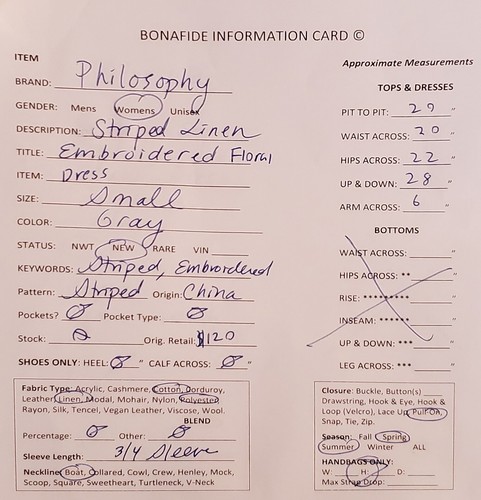 BONAFIDE INFORMATION CARD ©
ITEM
BRAND: Philosophy
GENDER: Mens Womens Unisex
DESCRIPTION: Striped Linen
TITLE: Embroidered Floral
ITEM: Dress
SIZE: Small
COLOR: Gray
STATUS: NWT NEW RARE VIN
KEYWORDS: Striped, Embroidered
Pattern: Striped Origin: China
Pockets? Ø Pocket Type: Ø
Stock: Ø Orig. Retail: $120
SHOES ONLY: HEEL: Ø " CALF ACROSS: Ø "
Fabric Type: Acrylic, Cashmere, Cotton, Corduroy,
Leather, Linen, Modal, Mohair, Nylon, Polyester,
Rayon, Silk, Tencel, Vegan Leather, Viscose, Wool.
BLEND
Percentage: Ø Other: Ø
Sleeve Length: 3/4 Sleeve
Neckline: Boat, Collared, Cowl, Crew, Henley, Mock,
Scoop, Square, Sweetheart, Turtleneck, V-Neck
Approximate Measurements
TOPS & DRESSES
PIT TO PIT: "
WAIST ACROSS: 20 "
HIPS ACROSS: 22 "
UP & DOWN: 28 "
ARM ACROSS: 6 "
BOTTOMS
WAIST ACROSS: "
HIPS ACROSS: ** "
RISE: ******** "
INSEAM: *** "
UP & DOWN: *** "
LEG ACROSS: *** "
Closure: Buckle, Button(s)
Drawstring, Hook & Eye, Hook &
Loop (Velcro), Lace Up, Pull-On,
Snap, Tie, Zip.
Season: Fall Spring
Summer Winter ALL
HANDBAGS ONLY:
W: H: D:
Max Strap Drop: